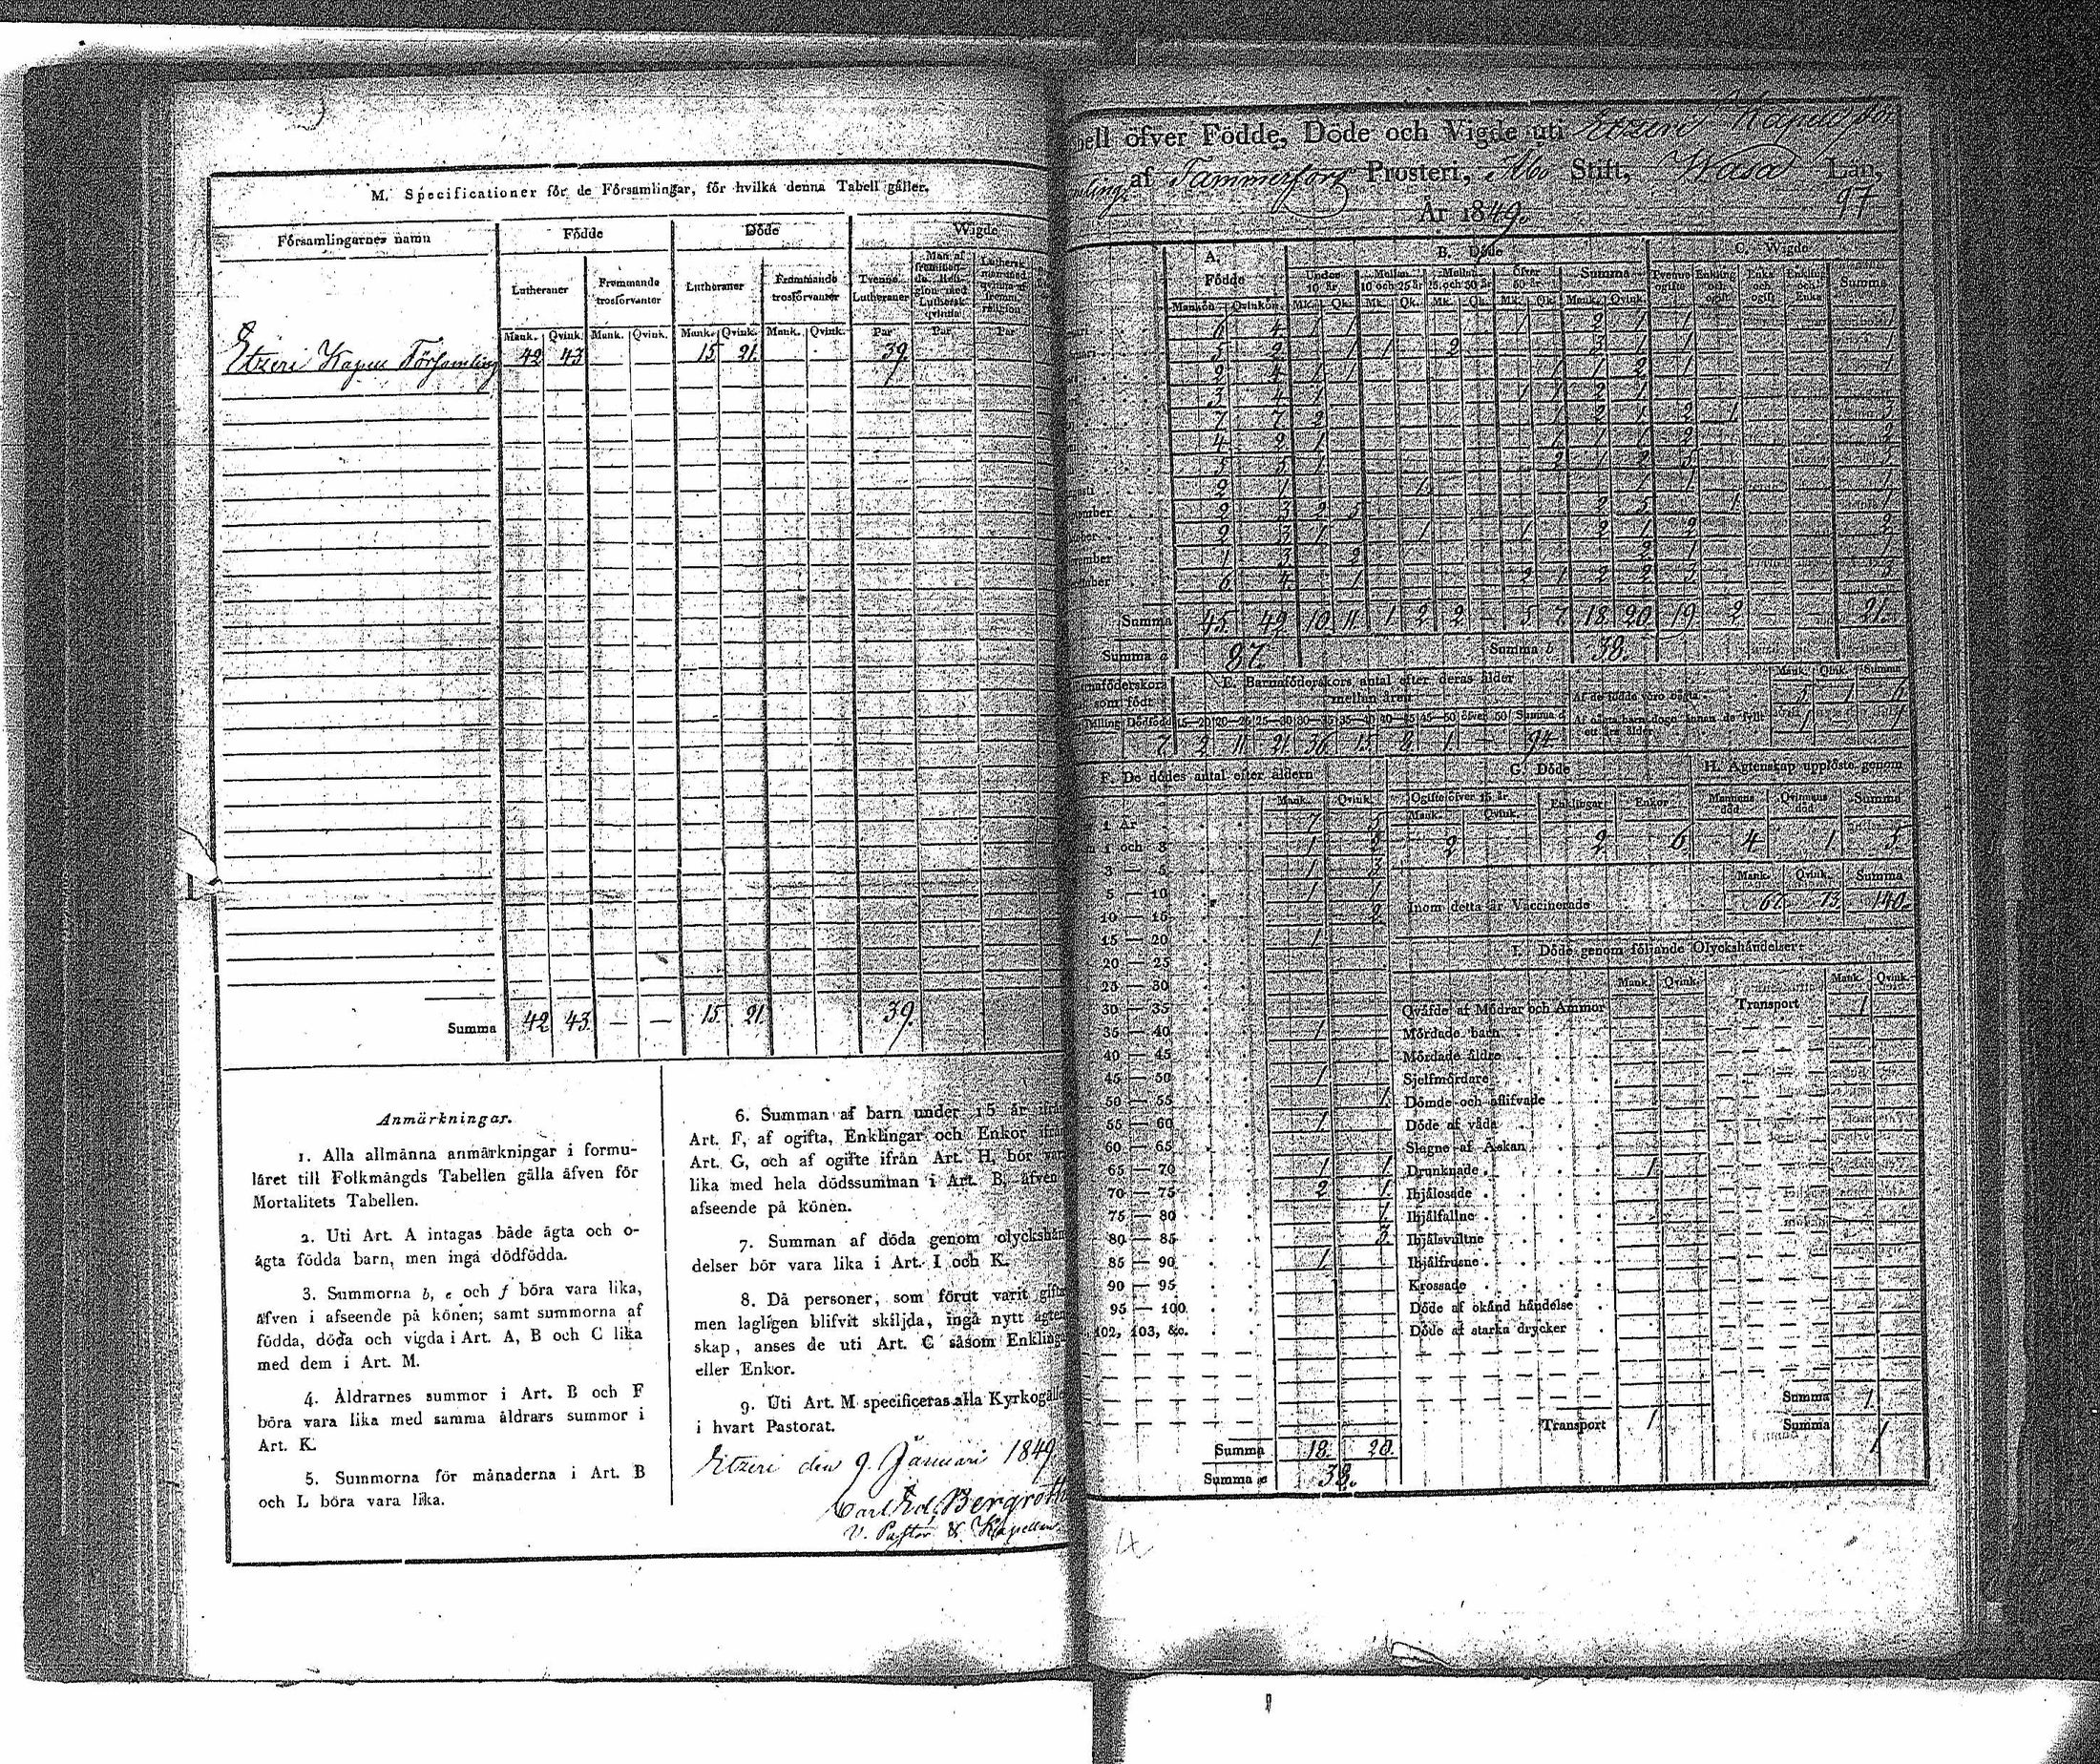 M. Specificationer för de Församlingar, för hvilka denna Tabell gäller.
Församlingarnes namn Födde Döde Wigde
Lutheraner Främmande trosförvanter Lutheraner Främmande trosförvanter Tvenne Lutheraner
Mank. Qvink. Mank. Qvink. Mank. Qvink. Mank. Qvink. Par Par Par
Etzeri Kapell Församling 42 43 15 21 39
Summa 42 43 — — 15 21 39.
Anmärkningar.
1. Alla allmänna anmärkningar i formu-
läret till Folkmängds Tabellen gälla äfven för
Mortalitets Tabellen.
2. Uti Art. A intagas både ägta och o-
ägta födda barn, men inga dödfödda.
3. Summorna b, e och f böra vara lika,
äfven i afseende på könen; samt summorna af
födda, döda och vigda i Art. A, B och C lika
med dem i Art. M.
4. Åldrarnes summor i Art. B och F
böra vara lika med samma åldrars summor i
Art. K.
5. Summorna för månaderna i Art. B
och L böra vara lika.
6. Summan af barn under 15 år ifrån
Art. F, af ogifta, Enklingar och Enkor ifrån
Art. G, och af ogifte ifrån Art. H, bör vara
lika med hela dödssumman i Art. B, äfven i
afseende på könen.
7. Summan af döda genom olyckshän
delser bör vara lika i Art. I och K.
8. Då personer, som förut varit gifta
men lagligen blifvit skiljda, ingå nytt ägten
skap, anses de uti Art. C såsom Enklinga
eller Enkor.
9. Uti Art. M specificeras alla Kyrkogäll
i hvart Pastorat.
Etzeri den 9 Januari 1849
Carl Ed. Bergroth
V. Pastor & Kapellan
bell öfver Födde, Döde och Vigde uti Etzeri Kapell för
mling, af Tammerfors Prosteri, Åbo Stift, Wasa Län,
År 1849. 97
A. Födde B. Döde C. Wigde
Under 10 år Mellan 10 och 25 år Mellan 25 och 50 år Öfver 50 år Summa Tvenne ogifte Enkling och ogift Enka och ogift Enkling och Enka Summa
Mankön Qvinkön Mk. Qk. Mk. Qk. Mk. Qk. Mk. Qk. Mank. Qvink.
6 4 1 1 1 2 1 1 1
5 2 1 1 2 3 1 1 1
2 4 1 1 1 1 2 1 1
3 4 1 1 1 2 1
7 7 2 1 2 1 2 1 3
4 2 1 1 1 1 2 2
5 5 1 2 1 2 5 5
2 1 1 1 1 1
2 3 2 5 2 5 1 1
2 3 1 1 1 2 1 2 2
1 3 2 2 1 1
6 4 1 2 1 2 2 3 3
Summa 45 42 10 11 1 2 2 — 5 7 18 20 19 2 — — 21.
Summa 87. Summa b 38.
E. Barnaföderskors antal efter deras ålder
mellan åren
Af de födde voro oägta 5 1
Mank. Qvink. Summa
Dödfödd 15—20 20—25 25—30 30—35 35—40 40—45 45—50 öfver 50 Summa
Af oägta barn dogo innan de fyllt
ett års ålder 1 — 1
7 2 11 21 36 15 8 1 — 94.
F. De dödes antal efter åldern G. Döde H. Ägtenskap upplöste genom
Mank. Qvink. Ogifte öfver 15 år Enklingar Enkor Mannens död Qvinnans död Summa
Mank. Qvink.
1 År 7 5
1 och 3 1 2 2 2 6 4 1 5
3 — 5 1 3
5 — 10 1 1
10 — 15 2
15 — 20 1
20 — 25
25 — 30
30 — 35
35 — 40 1
40 — 45
45 — 50 1
50 — 55 1
55 — 60 1
60 — 65
65 — 70 1 1
70 — 75 2 1
75 — 80 1
80 — 85 3
85 — 90 1
90 — 95
95 — 100
102, 103, &c.
Summa 18 20
Summa e 38.
Mank. Qvink. Summa
Inom detta år Vaccinerade 140.
I. Döde genom följande Olyckshändelser:
Mank. Qvink. Mank. Qvink.
Qväfde af Mödrar och Ammor Transport 1
Mördade barn
Mördade äldre
Sjelfmördare
Dömde och aflifvade
Döde af våda
Slagne af Åskan
Drunknade 1
Ihjälosade
Ihjälfallne
Ihjälsvultne
Ihjälfrusne
Krossade
Döde af okänd händelse
Döde af starka drycker
Summa 1
Transport 1 Summa 1